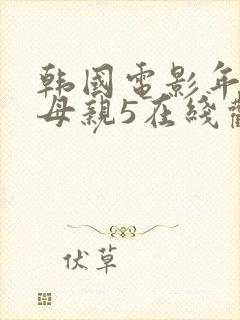 韩國電影年
母親5在綫
伏草